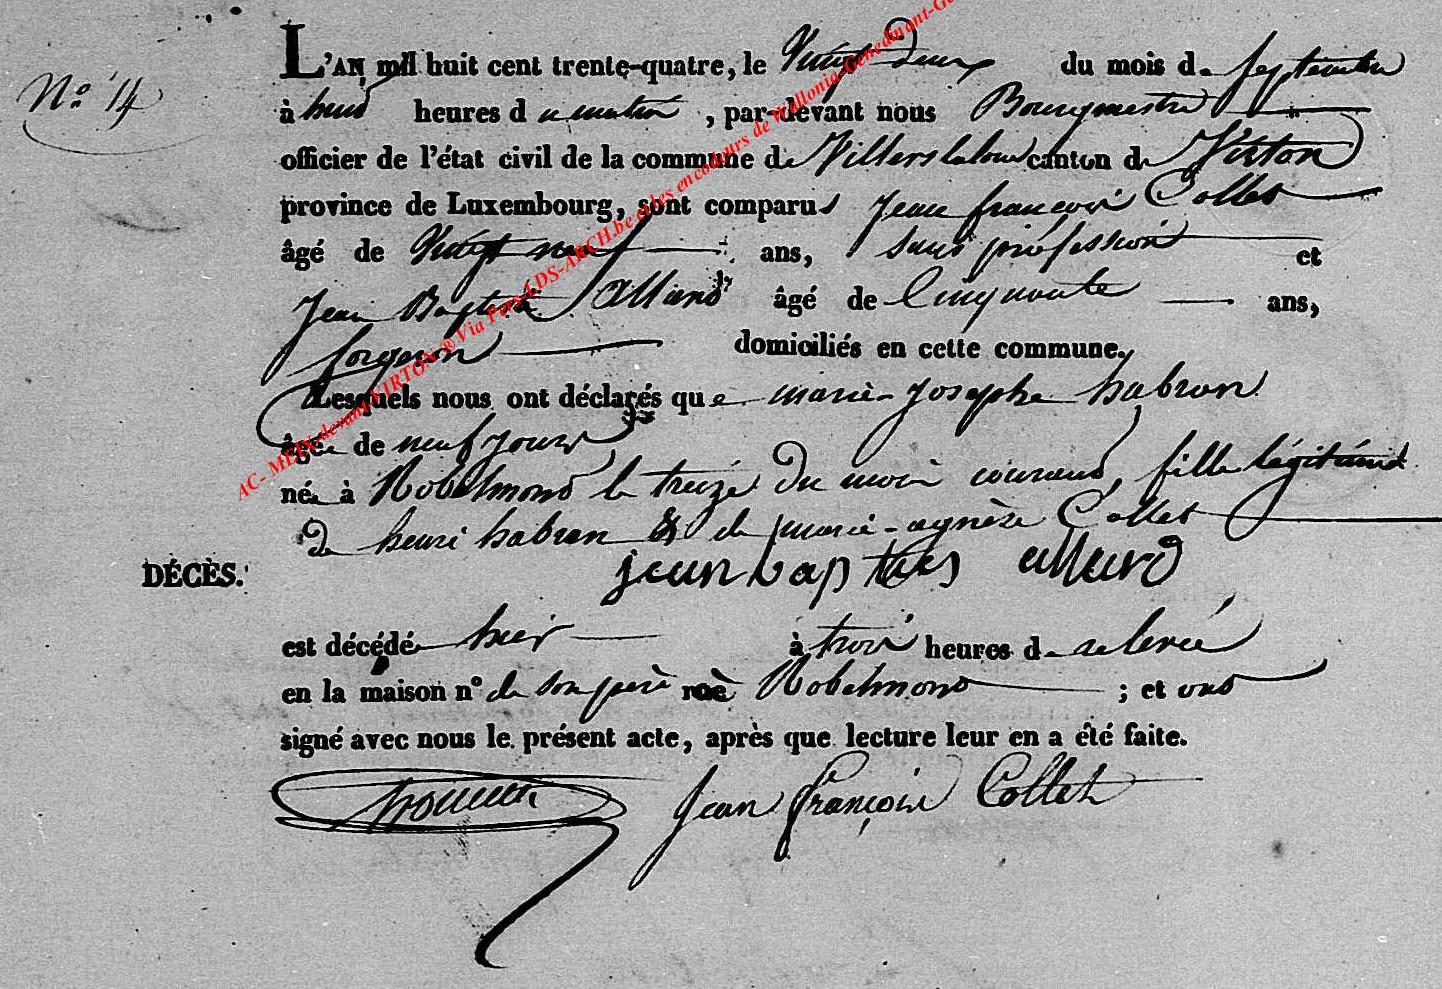 N.° 14
L'AN mil huit cent trente-quatre, le Vingt deux du mois de septembre
à huit heures du matin, par-devant nous Bourgmestre
officier de l'état civil de la commune de Villers laloue canton de Virton
province de Luxembourg, sont comparus Jean françois Collet
âgé de Vingt neuf ans, sans profession et
Jean Baptiste Allard âgé de Cinquante ans,
forgeron domiciliés en cette commune.
Lesquels nous ont déclarés que marie-Josephe habran
âgée de neuf jours
née à Robelmont le treize du mois courant, fille légitime
de henri habran & de marie-agnèse Collet
jean bapties allard
DÉCÈS.
est décédée hier à trois heures de relevée
en la maison n° de son père rue Robelmont ; et ont
signé avec nous le présent acte, après que lecture leur en a été faite.
Jean françois Collet
AC- MEIX-devant-VIRTON ® Via Pers-LDS-ARCH.be et les encodeurs de Wallonia-Genedinant-Ge